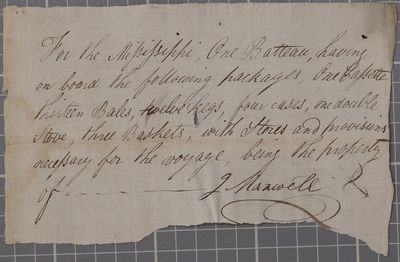 For the Mississippi, One Batteau, having
on board the following packages, One Cassette
thirteen Bales, twelve Kegs, four cases, one double
Stove, three Baskets, with Stores and provisions
necessary for the voyage, being the property
of - - - - - - - J Maxwell